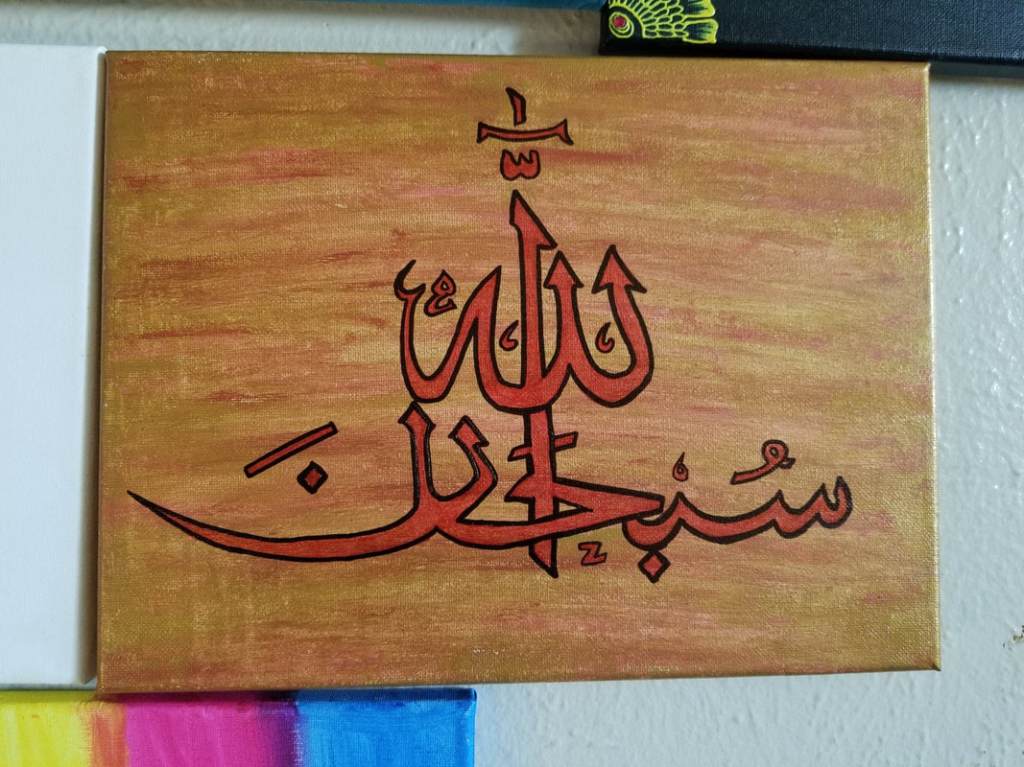 سُبْحَانَ اللّٰهِ